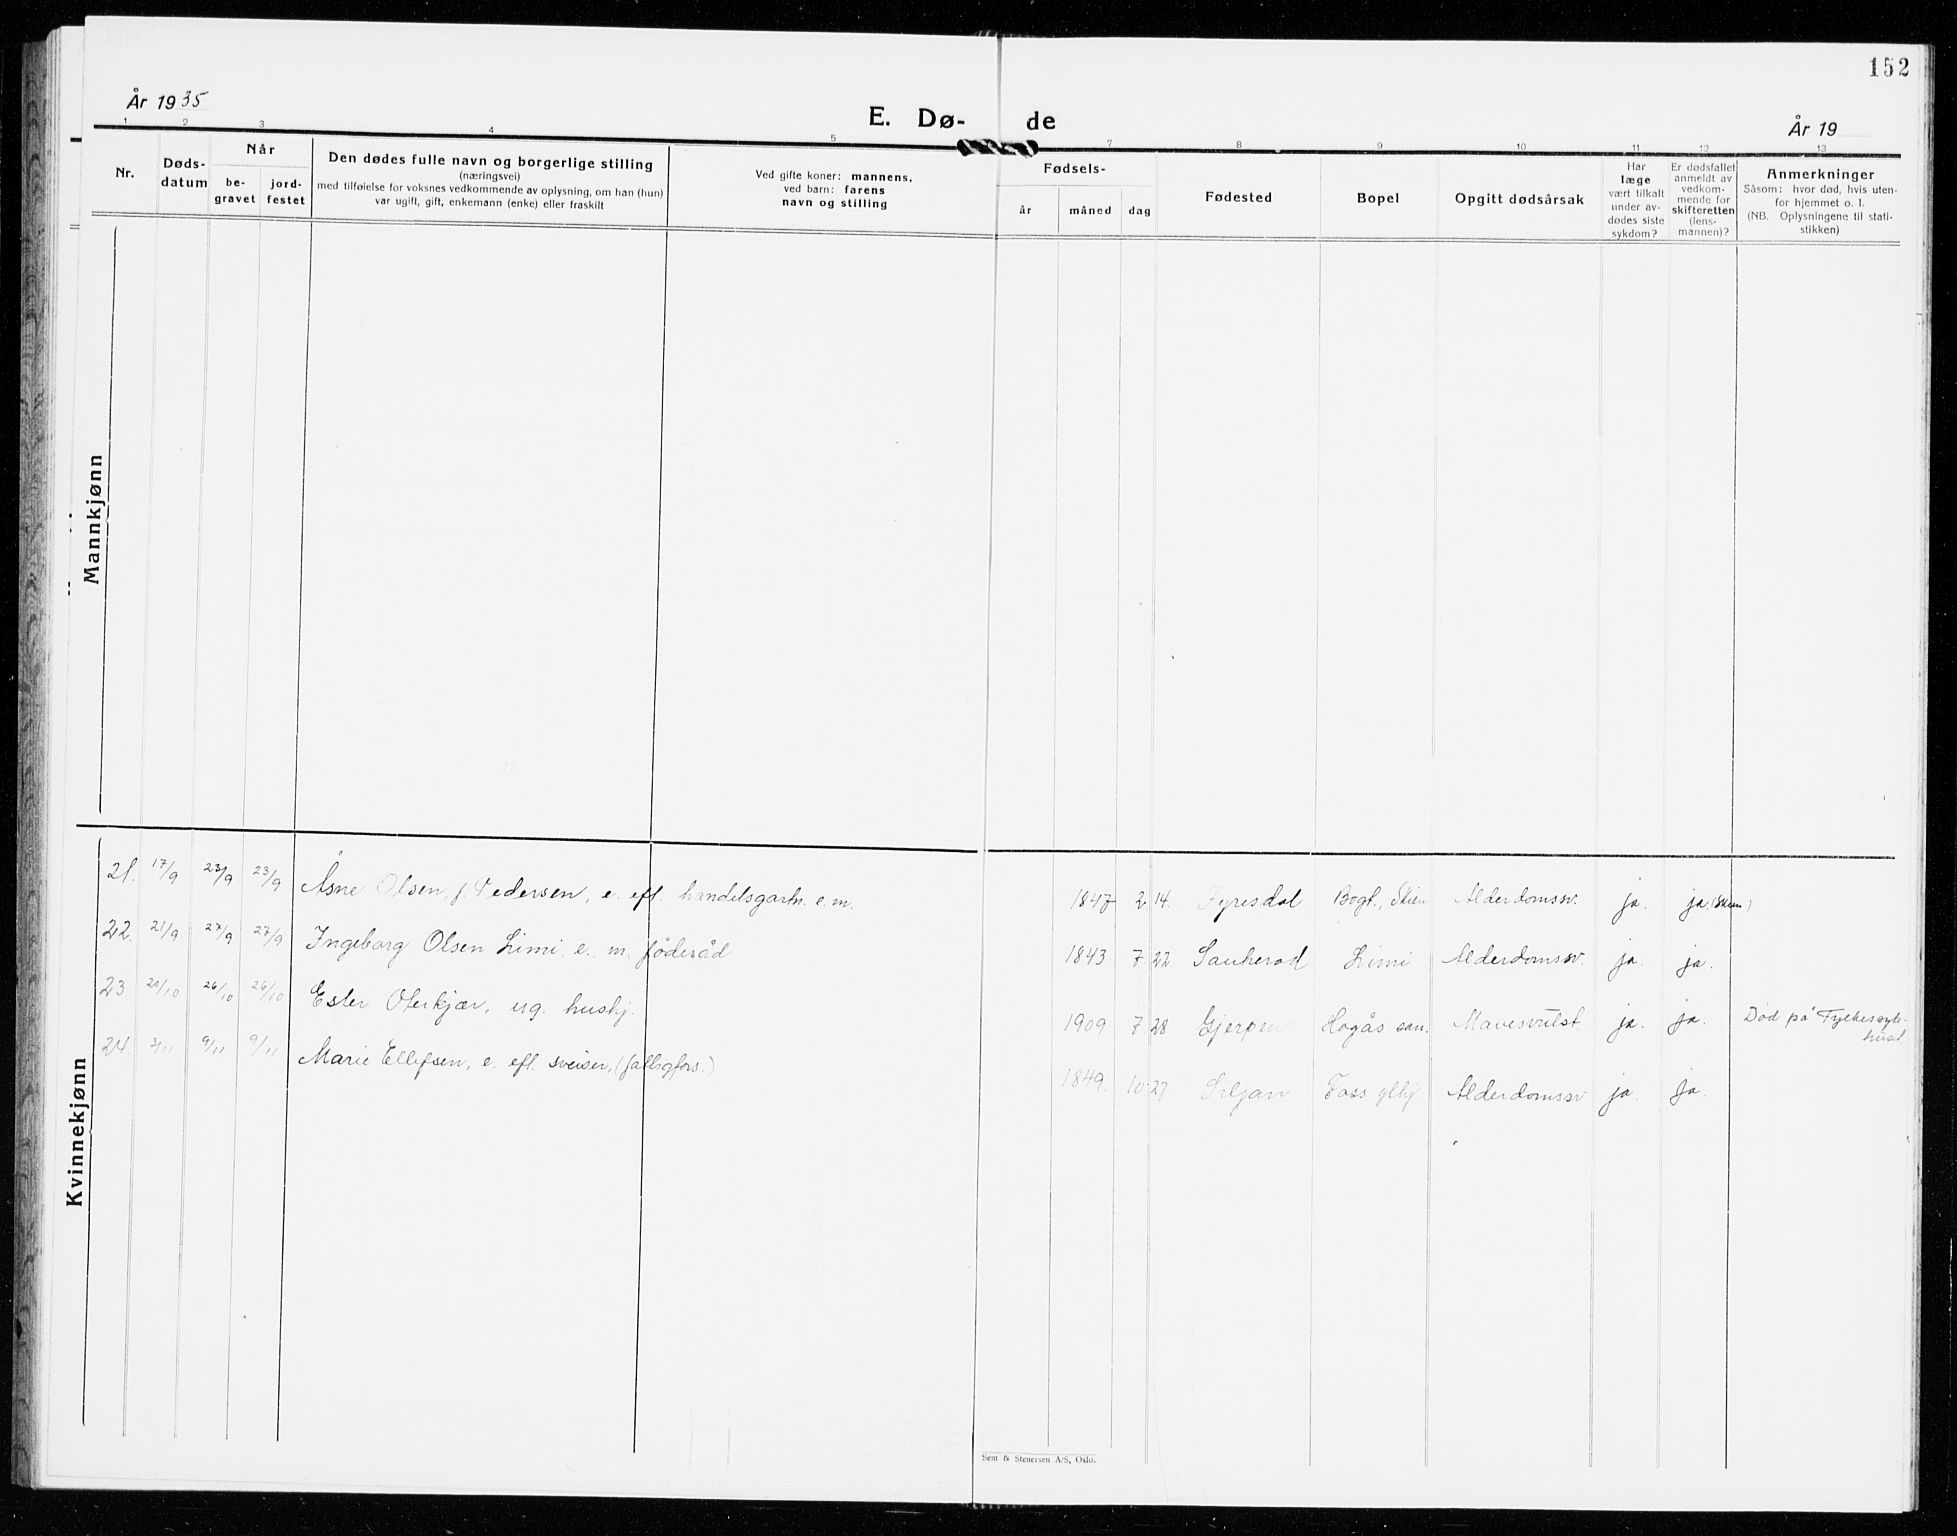 152
År 1935
E. Dø- de
År 19
1 2 3 4 5 7 8 9 10 11 12 13
Nr.
Døds-
datum
Når
be-
gravet
jord-
festet
Den dødes fulle navn og borgerlige stilling
(næringsvei)
med tilføielse for voksnes vedkommende av oplysning, om han (hun)
var ugift, gift, enkemann (enke) eller fraskilt
Ved gifte koner: mannens,
ved barn: farens
navn og stilling
Fødsels-
år måned dag
Fødested
Bopel
Opgitt dødsårsak
Har
læge
vært tilkalt
under av-
dødes siste
sykdom?
Er dødsfallet
anmeldt av
vedkom-
mende for
skifteretten
(lens-
mannen)?
Anmerkninger
Såsom: hvor død, hvis uten-
for hjemmet o. l.
(NB. Oplysningene til stati-
stikken)
Mannkjønn
Kvinnekjønn
21. 17/9 23/9 23/9 Åsne Olsen, f. Pedersen, e. eft. handelsgartn. e.m. 1847 2 14. Fyresdal Bogt., Skien Alderdomssv. ja. ja (Skien)
22. 21/9 27/9 27/9 Ingeborg Olsen Limi, e. m. föderåd 1843 7 22 Sauherad Limi Alderdomssv. ja. ja.
23 20/10 26/10 26/10 Ester Oterkjær, ug. hushj. 1909 7 28 Gjerpen Hogås san. Mavesvulst ja. ja. Död på Fylkessyke-
huset.
24. 3/11 9/11 9/11 Marie Ellefsen, e. eft. sveiser, (fattigfors.) 1849. 10 27. Siljan Foss glhj Alderdomssv ja. ja.
Sem & Stenersen A/S, Oslo.